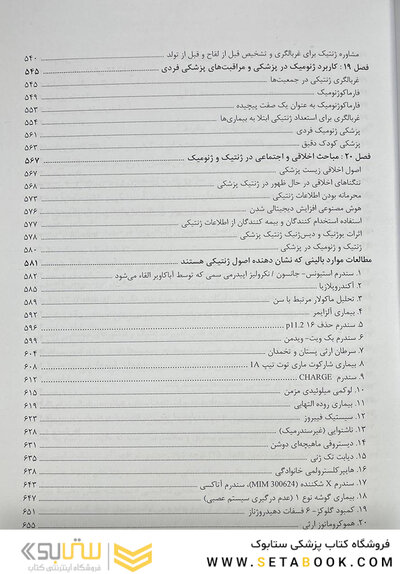 مشاوره ژنتیک برای غربالگری و تشخیص قبل از لقاح و قبل از تولد ۵۴۰
فصل ۱۹: کاربرد ژنومیک در پزشکی و مراقبت‌های پزشکی فردی ۵۴۵
غربالگری ژنتیکی در جمعیت‌ها ۵۴۵
فارماکوژنومیک ۵۴۹
فارماکوژنومیک به عنوان یک صفت پیچیده ۵۵۳
غربالگری برای استعداد ژنتیکی ابتلا به بیماری‌ها ۵۵۴
پزشکی ژنومیک فردی ۵۶۱
پزشکی کودک دقیق ۵۶۳
فصل ۲۰: مباحث اخلاقی و اجتماعی در ژنتیک و ژنومیک ۵۶۷
اصول اخلاقی زیست پزشکی ۵۶۷
تنگناهای اخلاقی در حال ظهور در ژنتیک پزشکی ۵۶۸
محرمانه بودن اطلاعات ژنتیکی ۵۷۳
هوش مصنوعی افزایش دیجیتالی شدن ۵۷۶
استفاده استخدام کنندگان و بیمه کنندگان از اطلاعات ژنتیکی ۵۷۷
اثرات یوژنیک و دیس‌ژنیک ژنتیک پزشکی ۵۷۸
ژنتیک و ژنومیک در پزشکی ۵۸۰
مطالعات موارد بالینی که نشان دهنده اصول ژنتیکی هستند ۵۸۱
۱. سندرم استیونس- جانسون / نکرولیز اپیدرمی سمی که توسط آباکاویر القاء می‌شود ۵۸۲
۲. آکندروپلازیا ۵۸۵
۳. تحلیل ماکولار مرتبط با سن ۵۸۹
۴. بیماری آلزایمر ۵۹۲
۵. سندرم حذف ۱۶ p11.2 ۵۹۶
۶. سندرم بک ویت- ویدمن ۵۹۹
۷. سرطان ارثی پستان و تخمدان ۶۰۴
۸. بیماری شارکوت ماری توث تیپ ۱A ۶۰۸
۹. سندرم CHARGE ۶۱۲
۱۰. لوکمی میلوئیدی مزمن ۶۱۵
۱۱. بیماری روده التهابی ۶۱۹
۱۲. سیستیک فیبروز ۶۲۳
۱۳. ناشنوایی (غیرسندرمیک) ۶۲۸
۱۴. دیستروفی ماهیچه‌ای دوشن ۶۳۱
۱۵. دیابت تک ژنی ۶۳۵
۱۶. هایپرکلسترولمی خانوادگی ۶۳۸
۱۷. سندرم X شکننده (MIM 300624)، سندرم آتاکسی ۶۴۳
۱۸. بیماری گوشه نوع ۱ (عدم درگیری سیستم عصبی) ۶۴۷
۱۹. کمبود گلوکز- ۶ فسفات دهیدروژناز ۶۵۱
۲۰. هموکروماتوز ارثی ۶۵۵
فروشگاه کتاب پزشکی ستابوک
WWW.SETABOOK.COM
ستابوک
فروشگاه اینترنتی کتاب